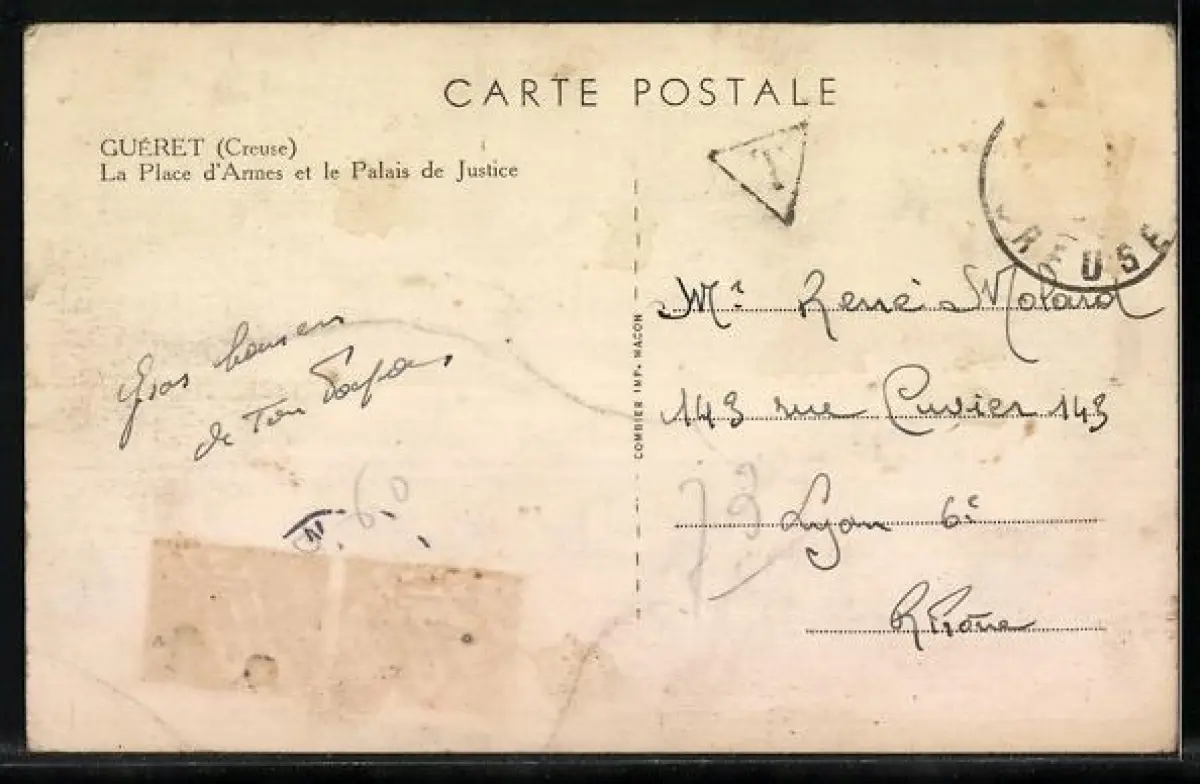 CARTE POSTALE
GUÉRET (Creuse)
La Place d'Armes et le Palais de Justice
T
CREUSE
Mr René Molard
143 rue Cuvier 143
Lyon 6e
Rhône
Gros
de Ton
60
COMBIER IMP. MACON